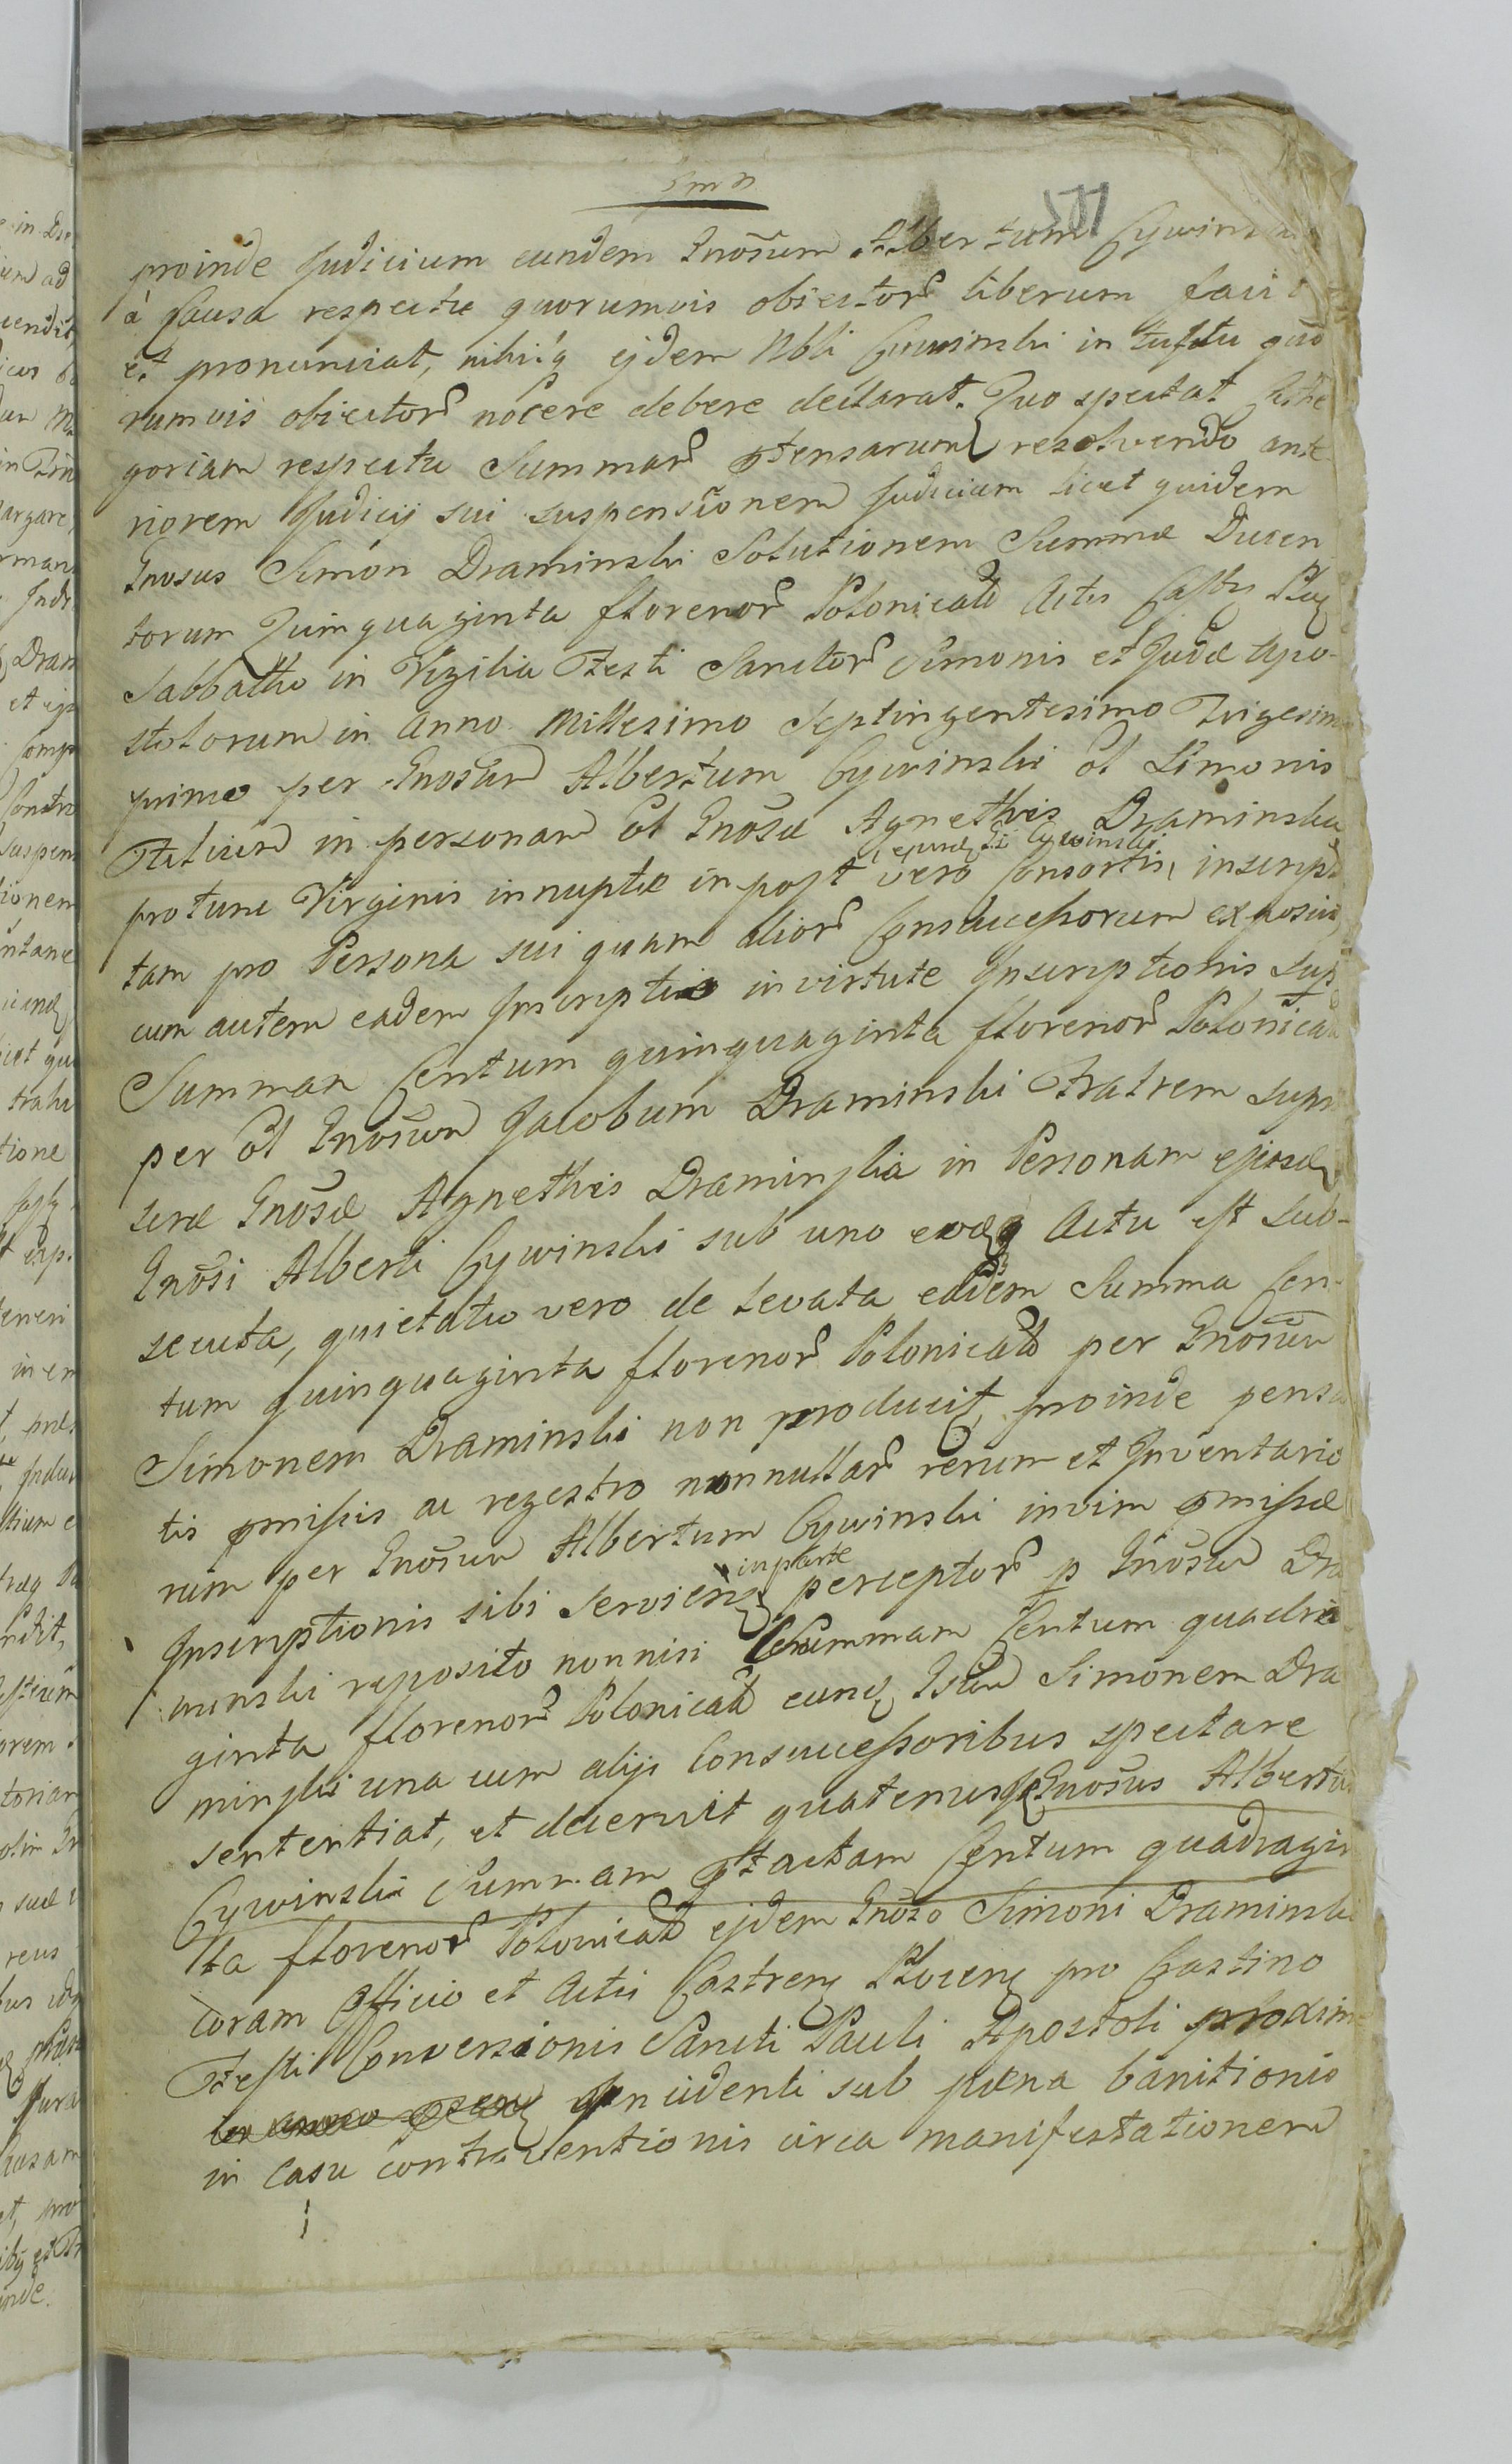 577
proinde Judicium eundem Gnosum Albertum Cywinski
à Causa respectu quorumvis obiector liberum facit
et pronunciat, nihilq ejdem Nbli Cywinski in tuftu quo
rumvis obiector nocere debere declarat. Quo spectat Cathe
goriam respectu Summar ptensarum resolvendo ante
riorem Judicij sui suspensionem Judicium licet quidem
Gnosus Simon Draminski Solutionem Summæ Ducen
torum Quinquaginta florenor Polonical Actis Castr Ploc
Sabbatho in Vigilia Festi Sanctor Simonis et Judæ Apo-
stolorum in Anno Millesimo Septingentesimo Trigesimo
primo per Gnosum Albertum Cywinski ol Simonis
Filium in personam ol Gnosæ Agnethis Draminska
protunc Virginis innuptæ in post vero ejund Di Cywinski Consortis, inscript
tam pro Persona sui quam alior Consuccessorum exposuit,
cum autem eadem Inscriptio in virtute Inscriptionis sup
Summar Centum quinquaginta florenor Polonical
per ol Gnosum Jacobum Draminski Fratrem supra
scræ Gnosæ Agnethis Draminska in Personam ejusd
Gnosi Alberti Cywinski sub uno eodq Actu est sub-
secuta, quietatio vero de levata eadem Summa Cen-
tum quinquaginta florenor Polonical per Gnosum
Simonem Draminski non producit, proinde pensa
tis pmissis ac regestro nonnullar rerum et Inventario
rum per Gnosum Albertum Cywinski in vim pmissæ
Inscriptionis sibi servien in parte perceptor p Gnosum Dra
minski reposito nonnisi Summam Centum quadra
ginta florenor Polonical eund Gsum Simonem Dra
minski una cum alijs Consuccessoribus spectare
sententiat, et decernit quatenus Gnosus Albertus
Cywinski Summam ptactam Centum quadragin
ta florenor Polonical ejdem Gnoso Simoni Draminski
coram Officio et Actis Castren Plocen pro Crastino
Festi Conversionis Sancti Pauli Apostoli proxime
incidenti sub pæna banitionis
in Casu contraventionis circa manifestationem